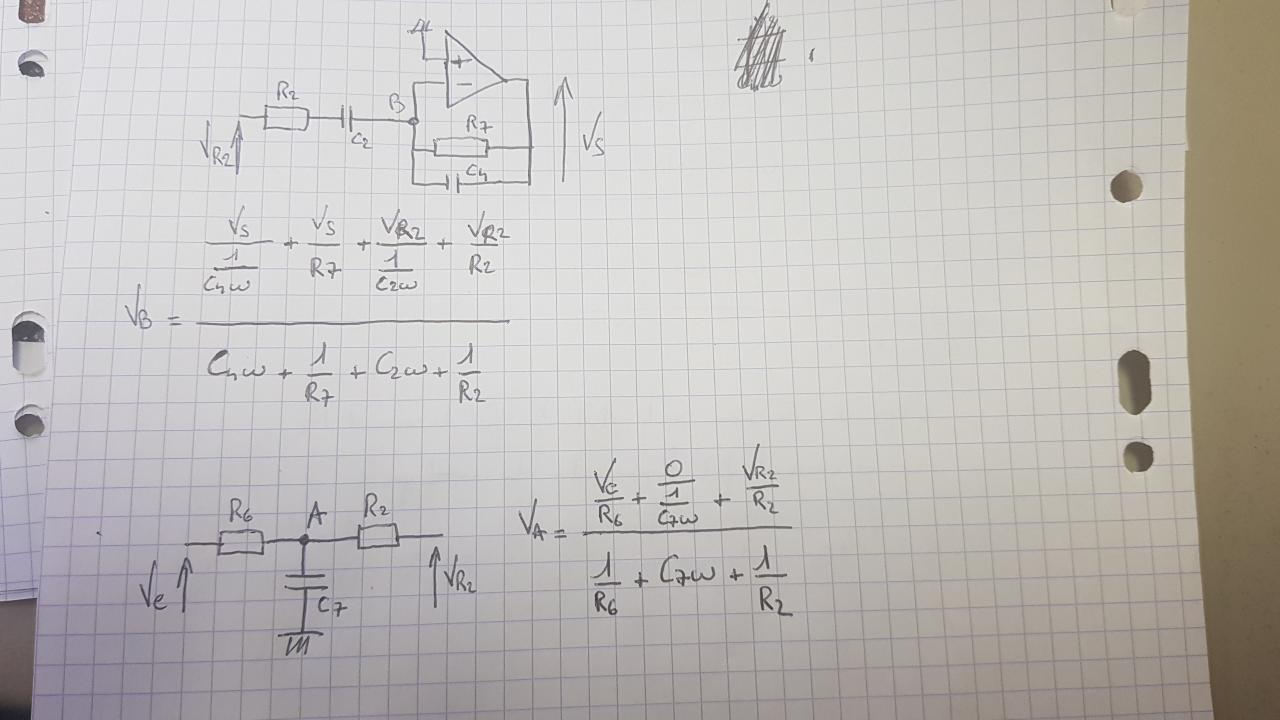 R2 B + −
VR2 C2 R7 VS
C4
VB = (VS/(1/C4ω) + VS/R7 + VR2/(1/C2ω) + VR2/R2) / (C4ω + 1/R7 + C2ω + 1/R2)
R6 A R2
Ve C7 VR2
VA = (Ve/R6 + 0/(1/C7ω) + VR2/R2) / (1/R6 + C7ω + 1/R2)